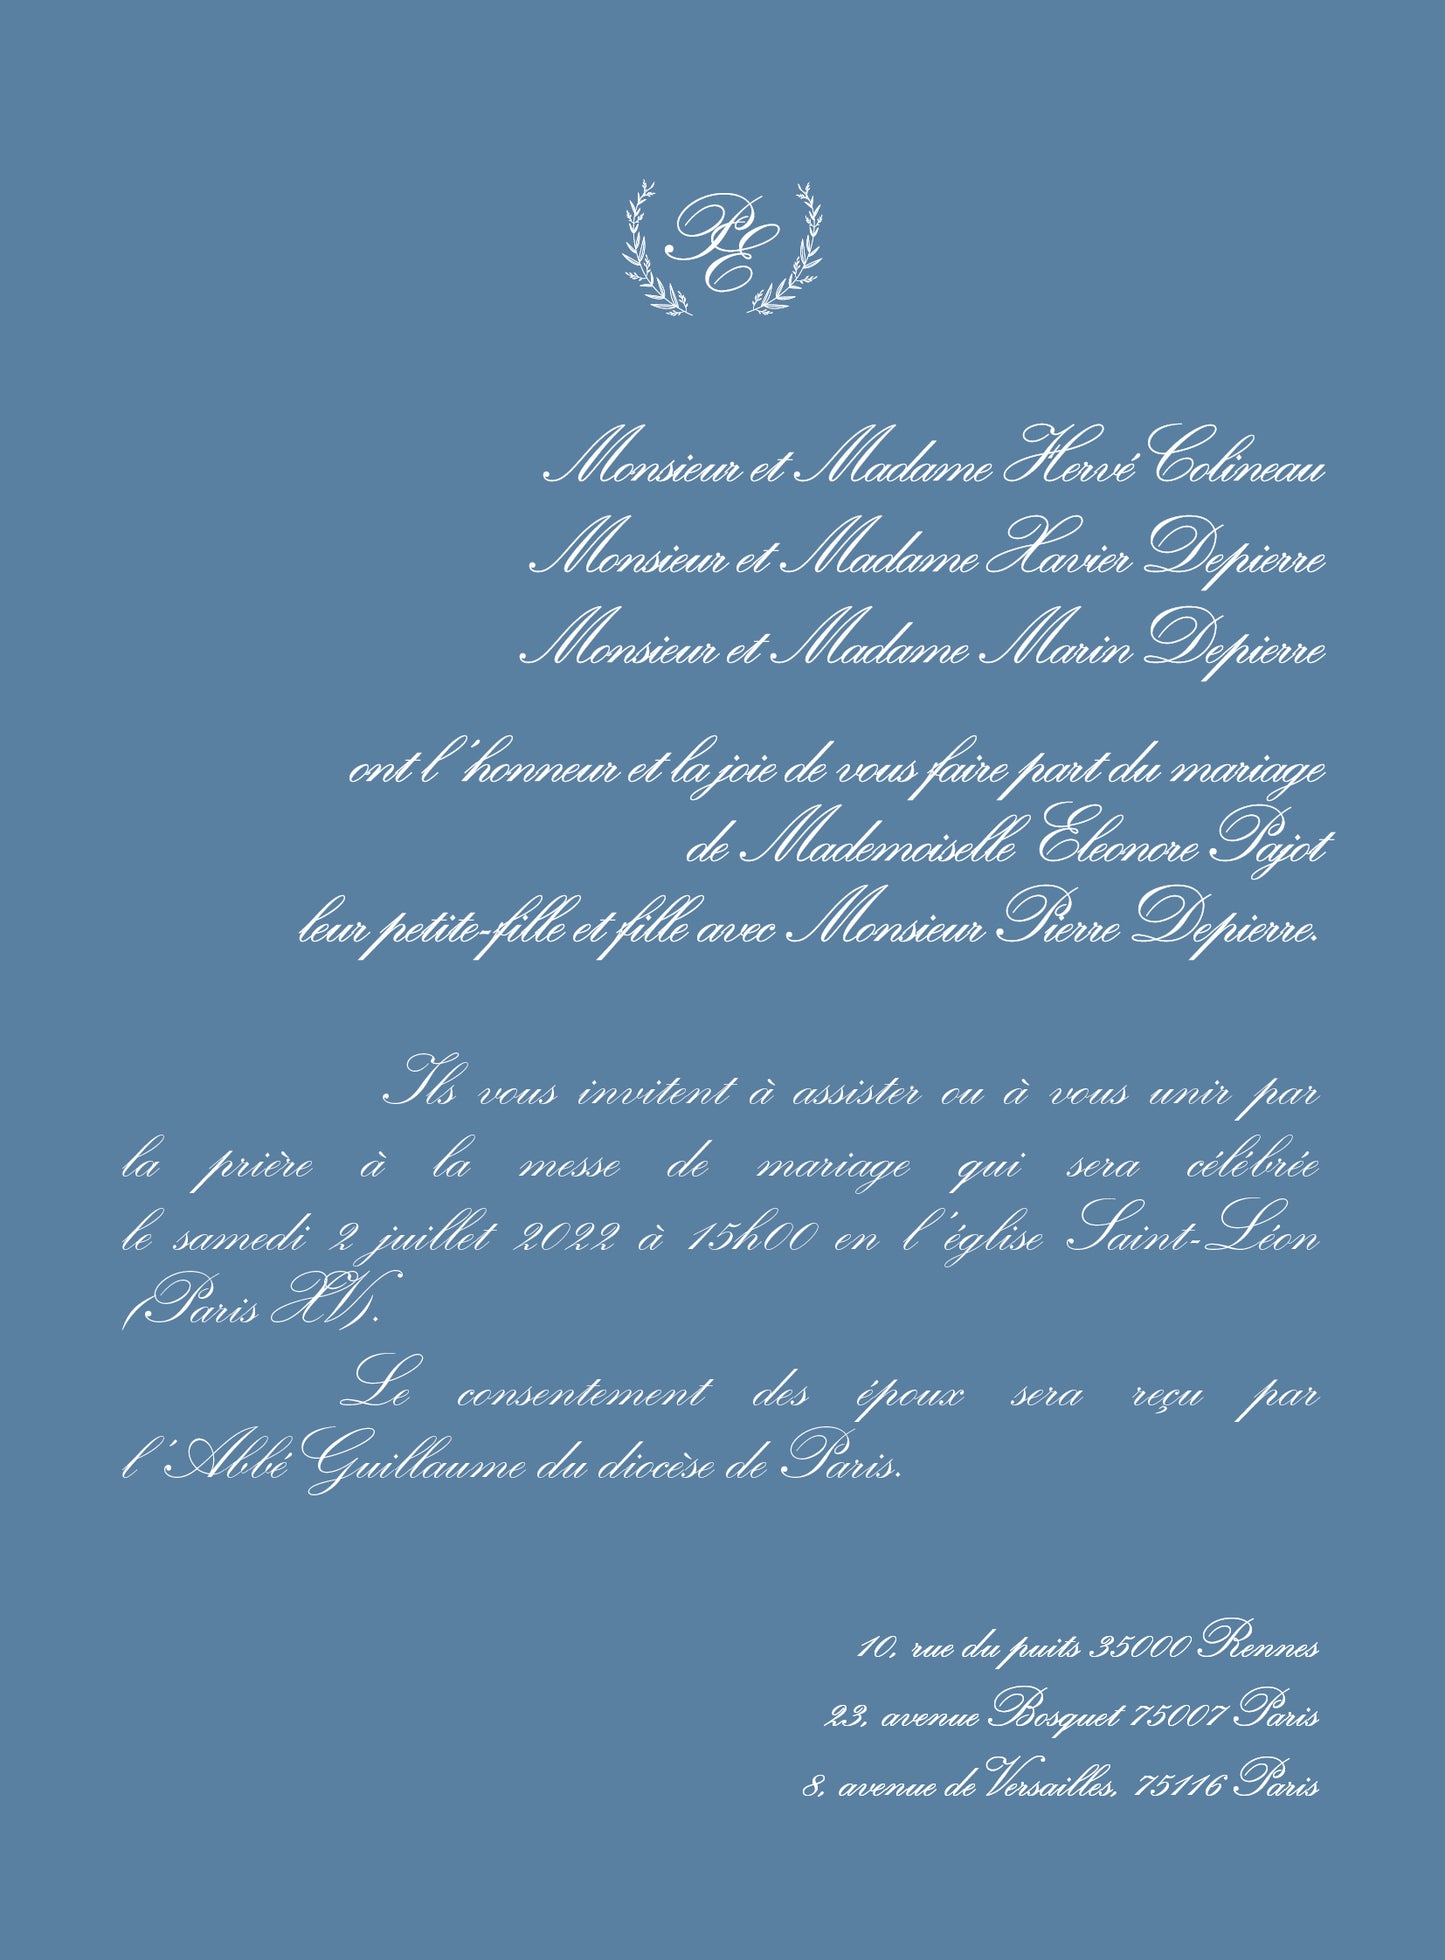 PE
Monsieur et Madame Hervé Colineau
Monsieur et Madame Xavier Depierre
Monsieur et Madame Marin Depierre
ont l'honneur et la joie de vous faire part du mariage
de Mademoiselle Eleonore Pajot
leur petite-fille et fille avec Monsieur Pierre Depierre.
Ils vous invitent à assister ou à vous unir par
la prière à la messe de mariage qui sera célébrée
le samedi 2 juillet 2022 à 15h00 en l'église Saint-Léon
(Paris XV).
Le consentement des époux sera reçu par
l'Abbé Guillaume du diocèse de Paris.
10, rue du puits 35000 Rennes
23, avenue Bosquet 75007 Paris
8, avenue de Versailles, 75116 Paris